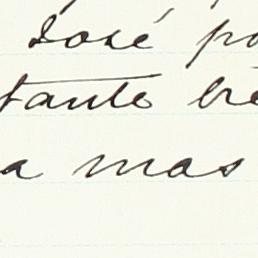 José po
tante bre
a mas